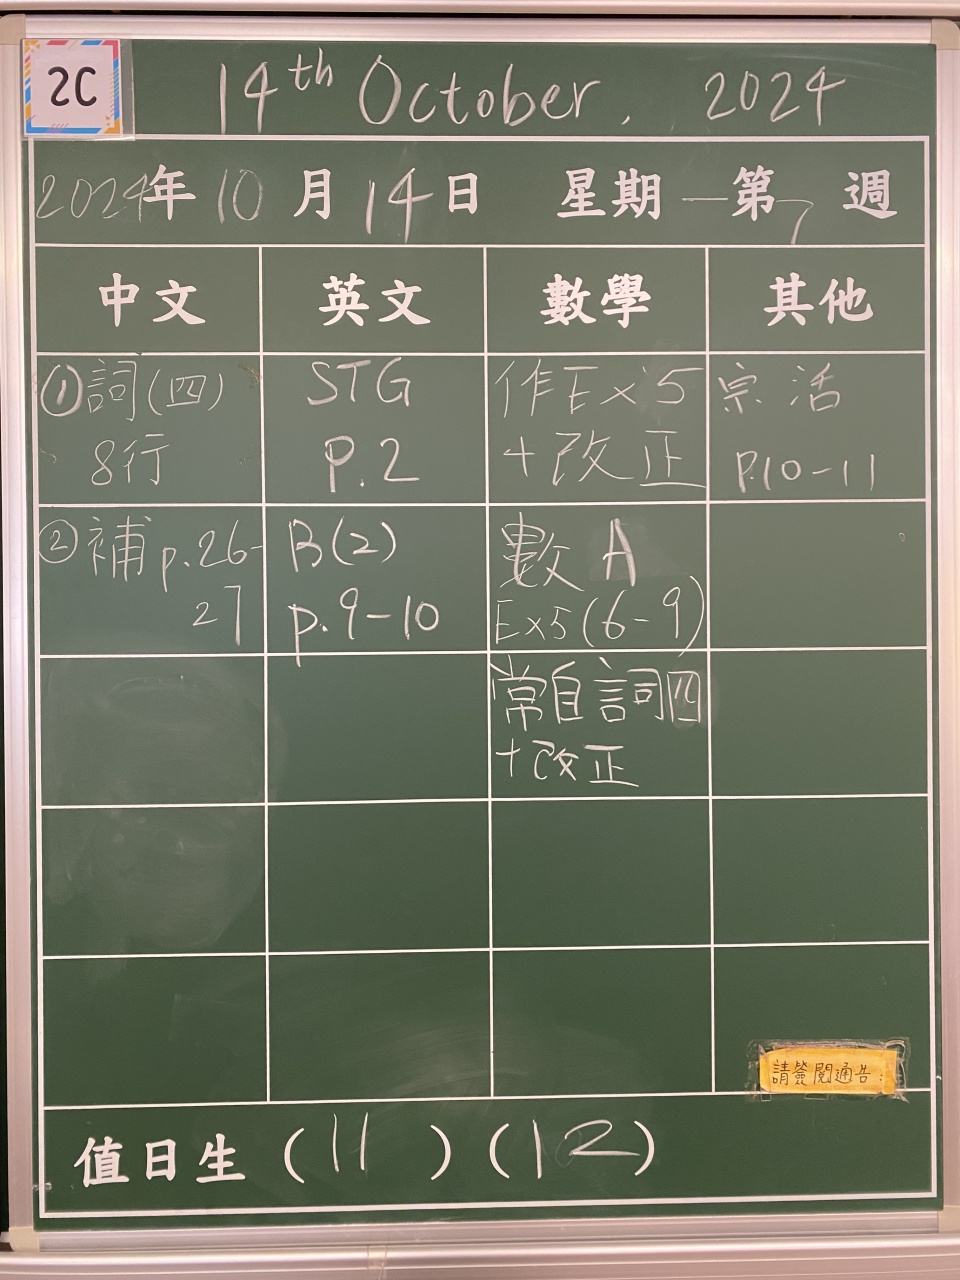 2C
14th October, 2024
2024年10月14日 星期一第7週
中文 英文 數學 其他
①詞(四)
8行
STG
P.2
作Ex5
+改正
宗活
P.10-11
②補p.26-
27
B(2)
p.9-10
數A
Ex5(6-9)
常自詞四
+改正
請簽閱通告:
值日生(11)(12)